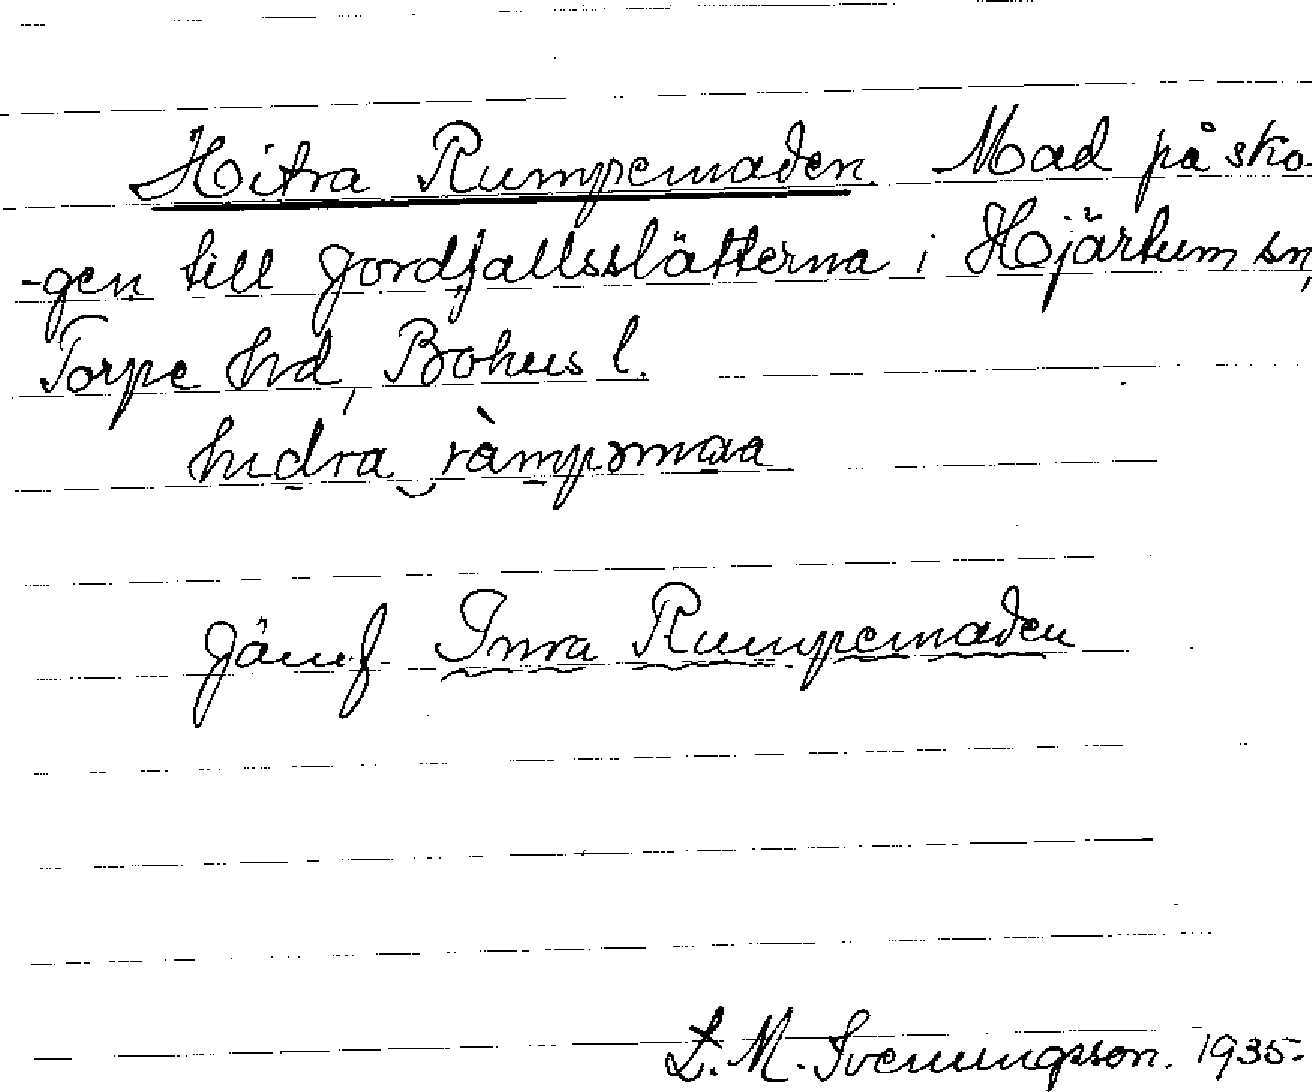 Hitra Rumpemaden. Mad på sko-
-gen till Jordfallsslätterna i Hjärtum sn,
Torpe hd, Bohus l.
hıdra‿ràmpəmaa
Jämf Inra Rumpemaden
L. M. Svenungsson. 1935.